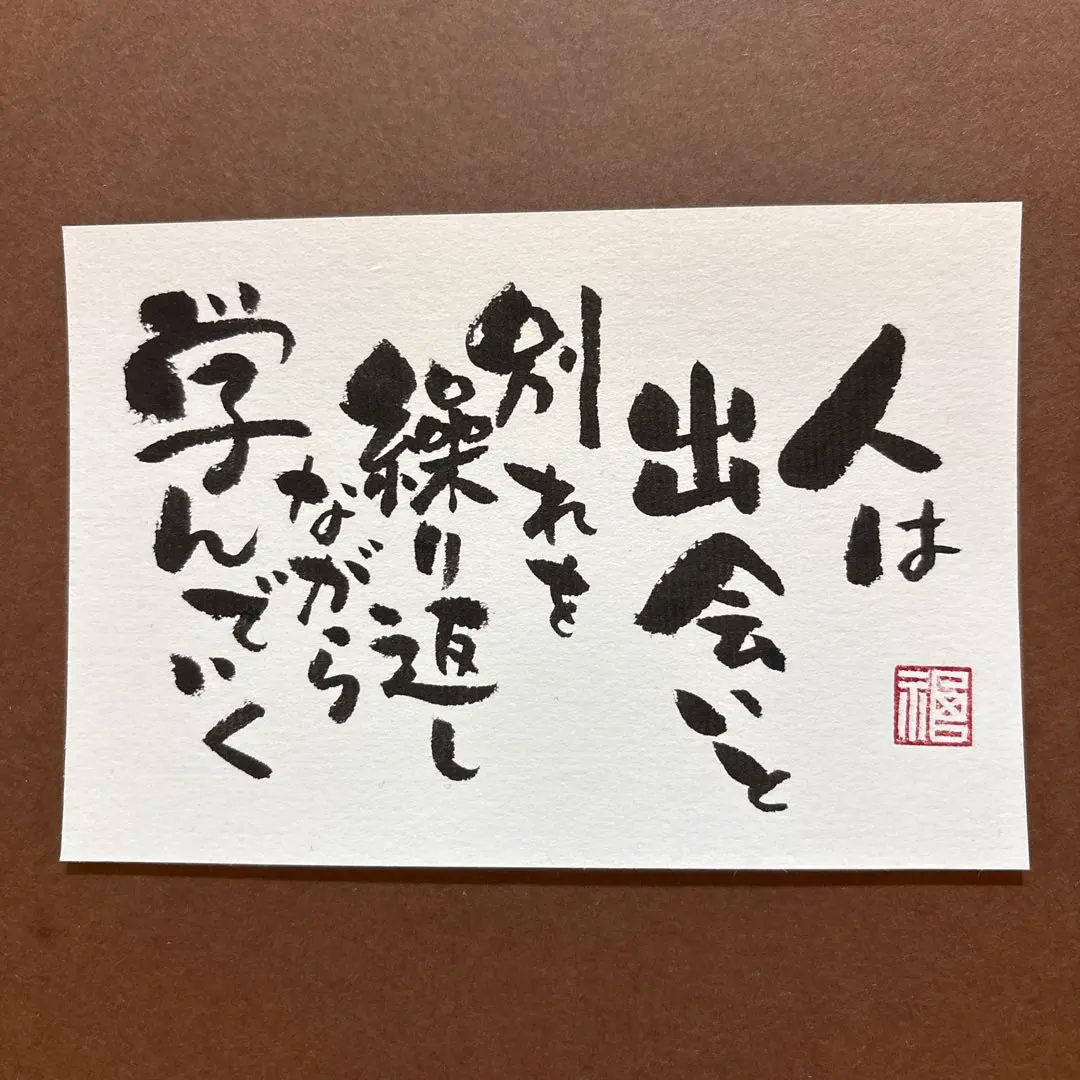 人は
出会いと
別れを
繰り返し
ながら
学んでいく
福